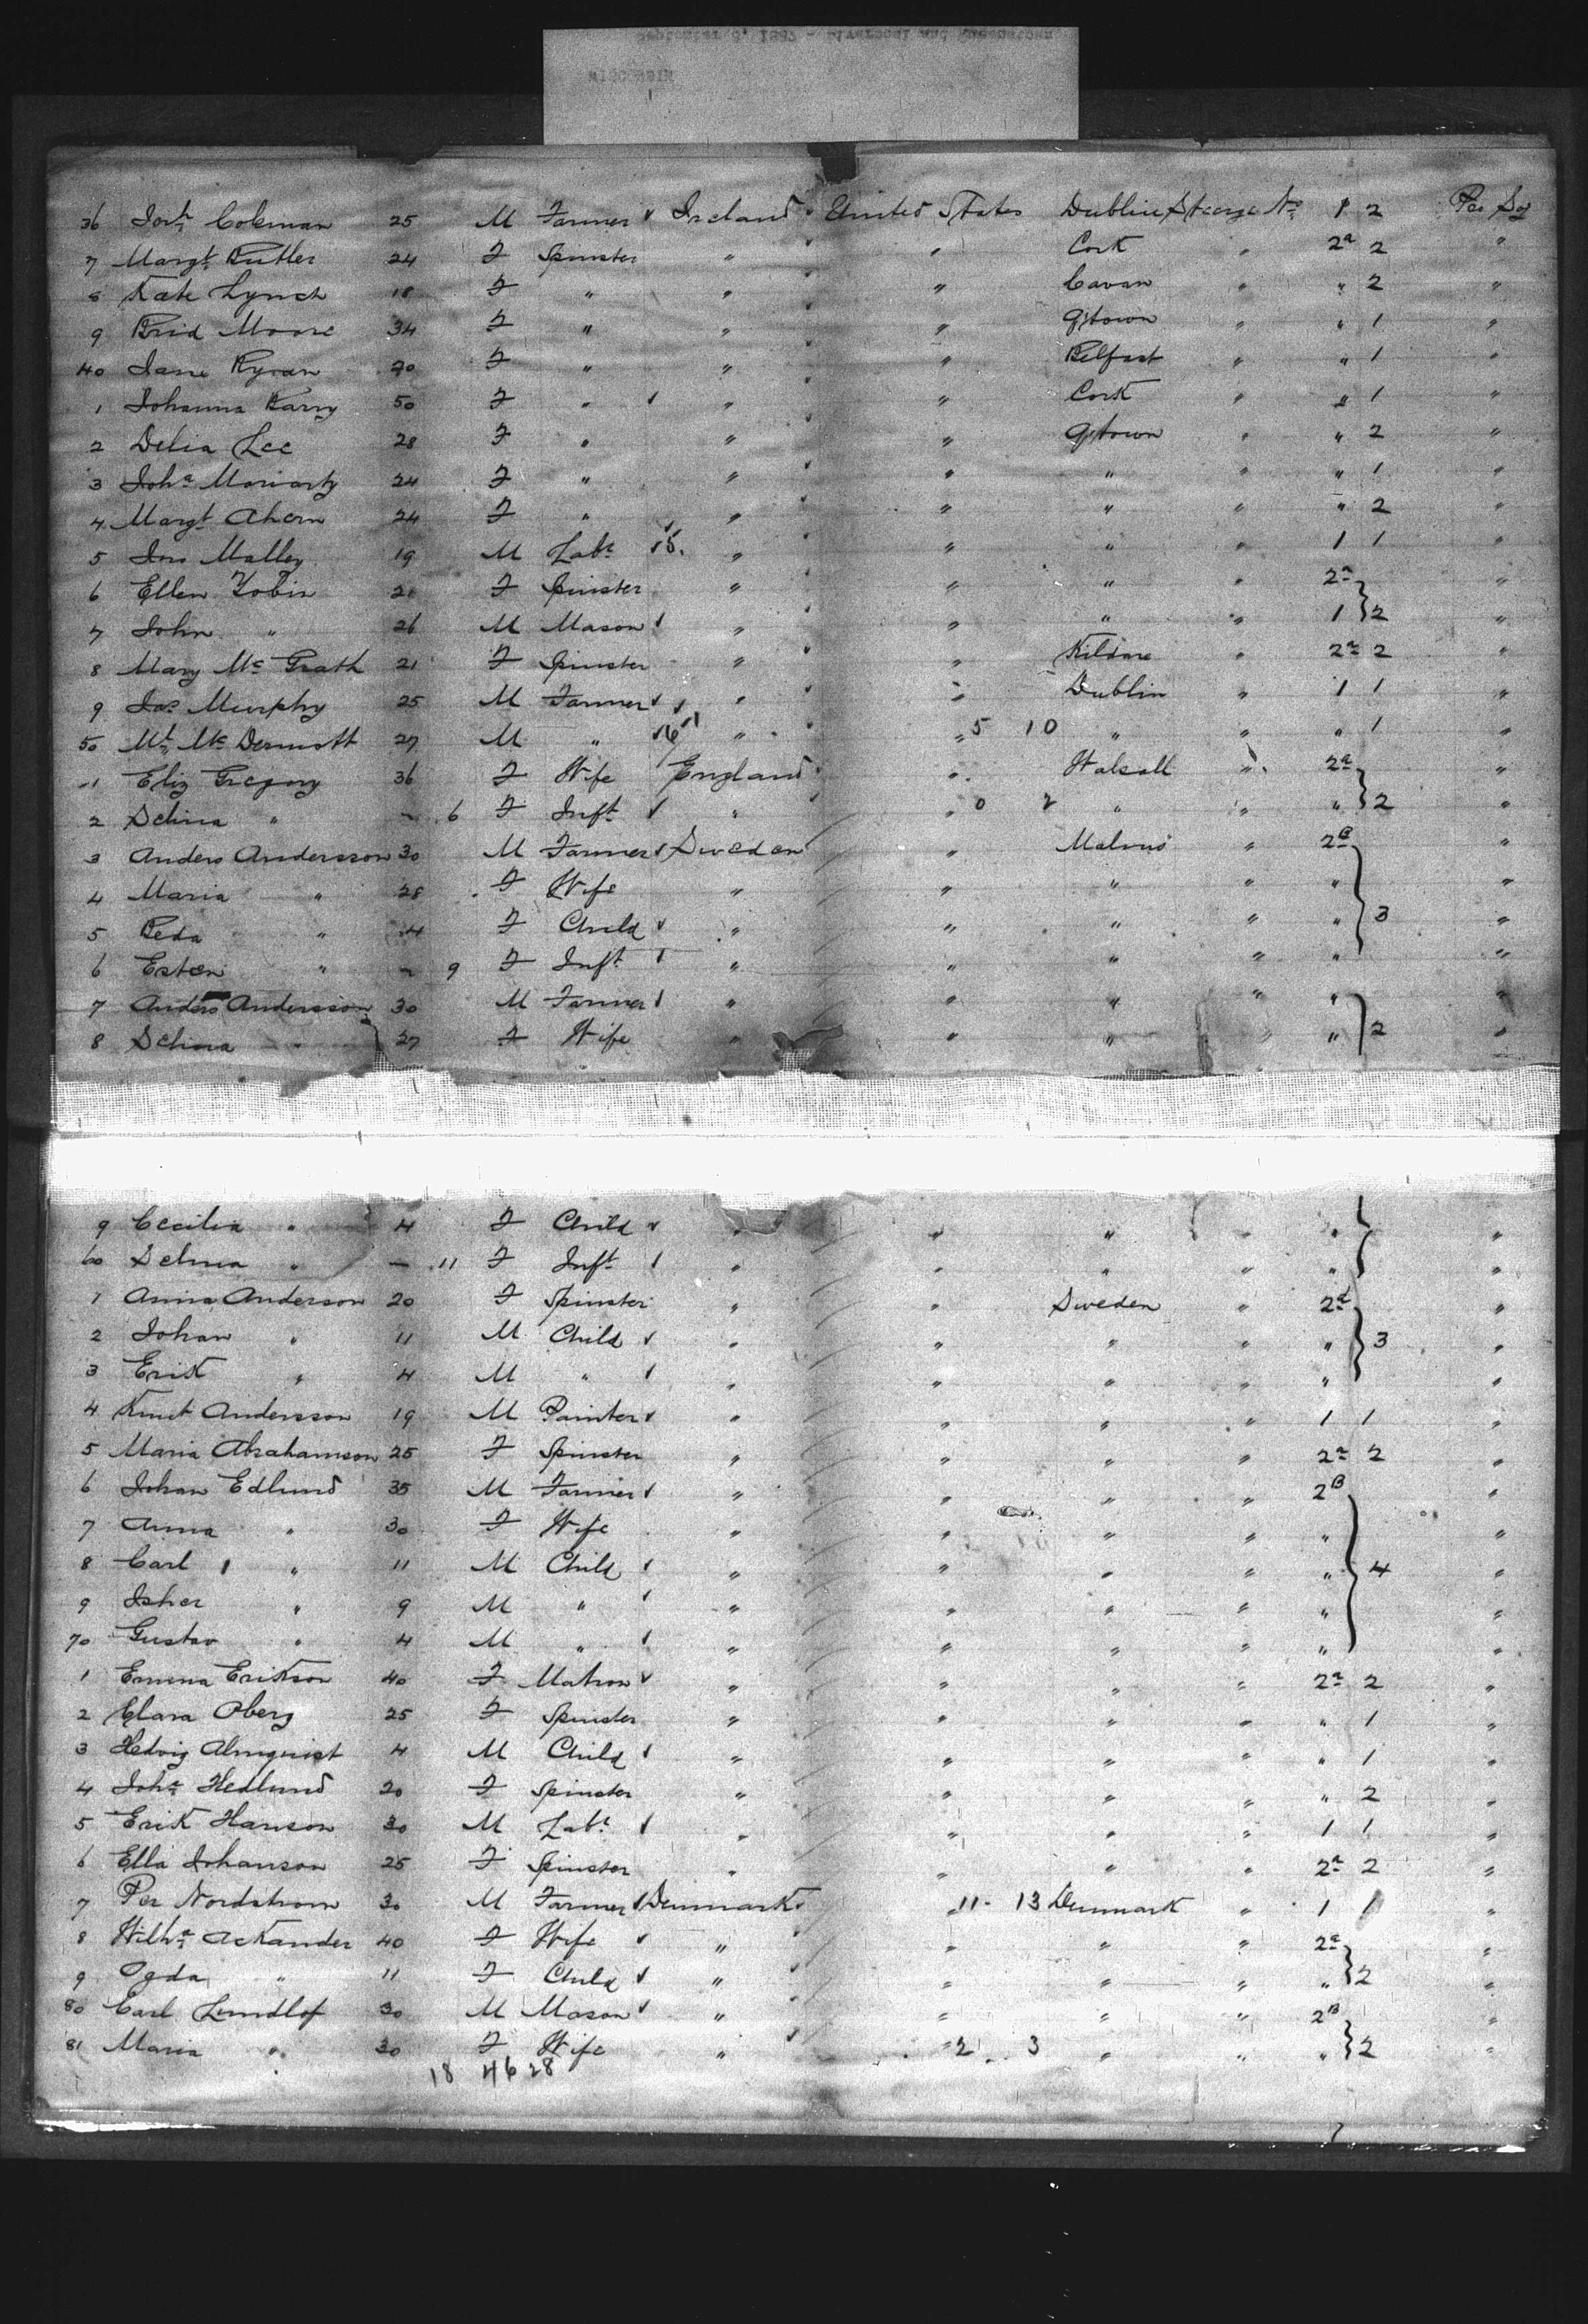 36 Jos^h Coleman 25 M Farmer Ireland United States Dublin Steerage N^o 1 2 Per Sog
7 Marg^t Butler 24 F Spinster " " Cork " 2^a 2 "
8 Kate Lynch 18 F " " " Cavan " " 2 "
9 Brid Moore 34 F " " " Q'town " " 1 "
40 Jane Ryan 20 F " " " Belfast " " 1 "
1 Johanna Barry 50 F " " " Cork " " 1 "
2 Delia Lee 28 F " " " Q'town " " 2 "
3 Joh^a Moriarty 24 F " " " " " " 1 "
4 Marg^t Ahern 24 F " " " " " " 2 "
5 Jno Malley 19 M Lab^r 15. " " " 1 1 "
6 Ellen Tobin 21 F Spinster " " " " 2^a "
7 John " 26 M Mason " " " " 1 2 "
8 Mary Mc Grath 21 F Spinster " " Kildare " 2^a 2 "
9 Jas Murphy 25 M Farmer " " Dublin " 1 1 "
50 M^t Mc Dermott 27 M " 16 " " 5 10 " " " 1 "
1 Eliz Gregory 36 F Wife England " Walsall " 2^a "
2 Selina " - 6 F Inft " " 0 2 " " " 2 "
3 Anders Andersson 30 M Farmer Sweden " Malmö " 2^B "
4 Maria " 28 F Wife " " " " " "
5 Beda " 4 F Child " " " " " 3 "
6 Ester " - 9 F Inft " " " " " "
7 Anders Andersson 30 M Farmer " " " " " "
8 Selma " 27 F Wife " " " " " 2 "
9 Cecilia " 4 F Child " " " " " "
60 Selma " - 11 F Inft " " " " " "
1 Anna Anderson 20 F Spinster " " Sweden " 2^a "
2 Johan " 11 M Child " " " " " 3 "
3 Erik " 4 M " " " " " " "
4 Knut Andersson 19 M Painter " " " " 1 1 "
5 Maria Abrahamson 25 F Spinster " " " " 2^a 2 "
6 Johan Edlund 35 M Farmer " " " " 2^B "
7 Anna " 30 F Wife " " " " " "
8 Carl " 11 M Child " " " " " 4 "
9 Isher " 9 M " " " " " " "
70 Gustav " 4 M " " " " " " "
1 Emma Erikson 40 F Matron " " " " 2^a 2 "
2 Clara Oberg 25 F Spinster " " " " " 1 "
3 Hedvig Almquist 4 M Child " " " " " 1 "
4 Joh^a Hedlund 20 F Spinster " " " " " 2 "
5 Erik Hanson 30 M Lab^r " " " " 1 1 "
6 Ella Johanson 25 F Spinster " " " " 2^a 2 "
7 Per Nordstrom 30 M Farmer Denmark " 11 - 13 Denmark " 1 1 "
8 Wilh^a Ackander 40 F Wife " " " " 2^a "
9 Ogda " 11 F Child " " " " " 2 "
80 Carl Lundlof 30 M Mason " " " " 2^B "
81 Maria " 30 F Wife " " 2 3 " " " 2 "
18 46 28